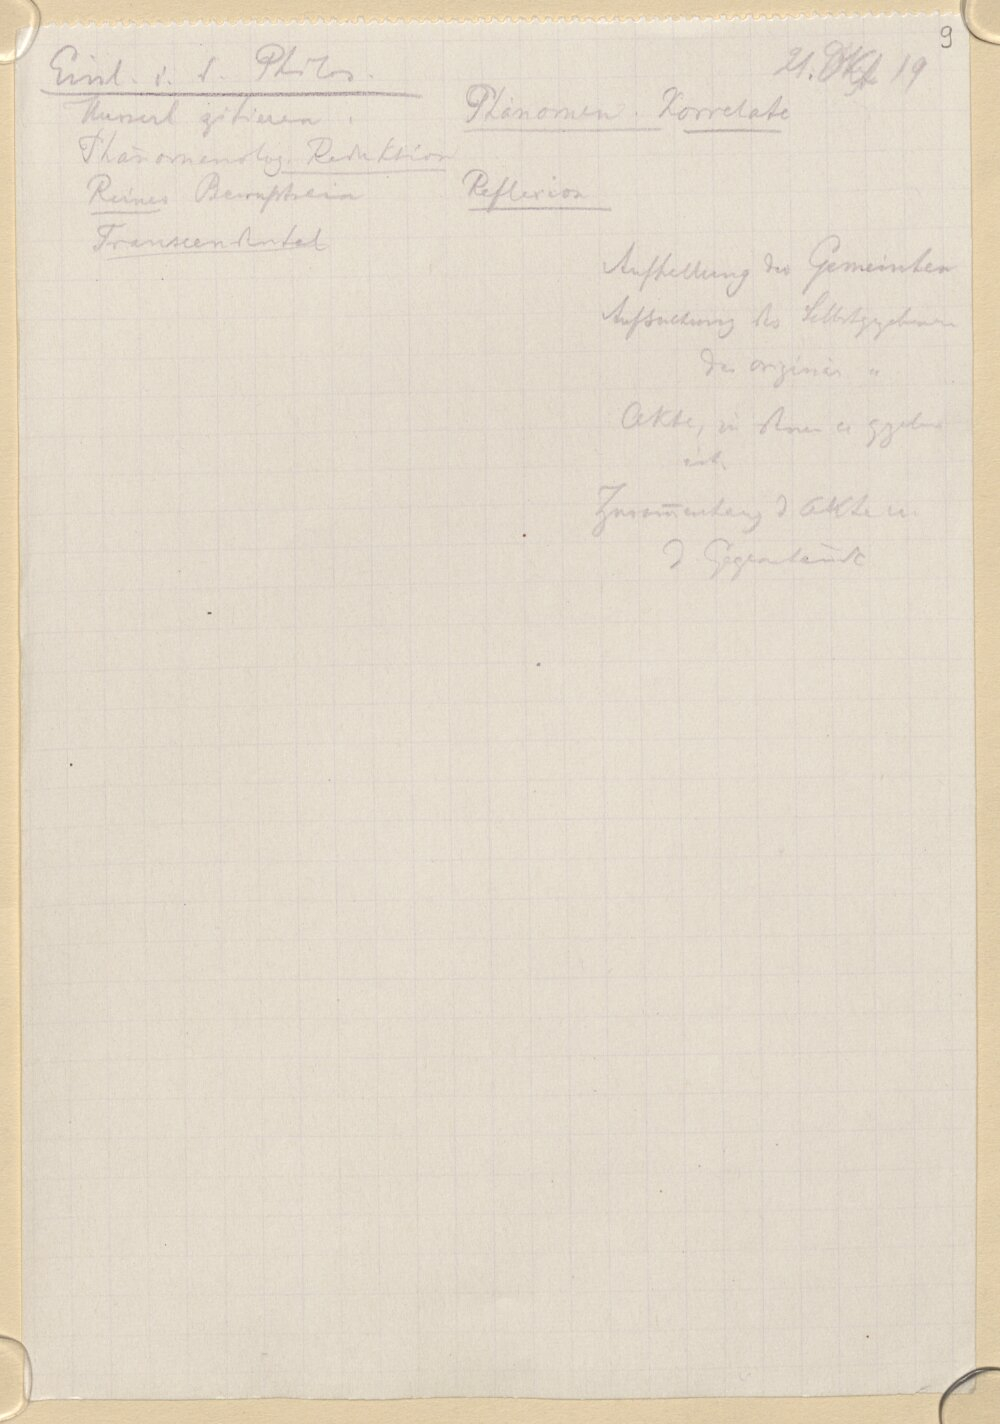 9
Einl. i. d. Philos.
21. Okt 19
Husserl zitieren.
Phänomen. Korrelate
Phänomenolog. Reduktion
Reines Bewußtsein
Reflexion
Transcendental
Aufhellung des Gemeinten
des Selbstgegebenen
des originär "
Akte, in denen es gegeben
ist.
Zusammenhang d Akte u.
d Gegenstände